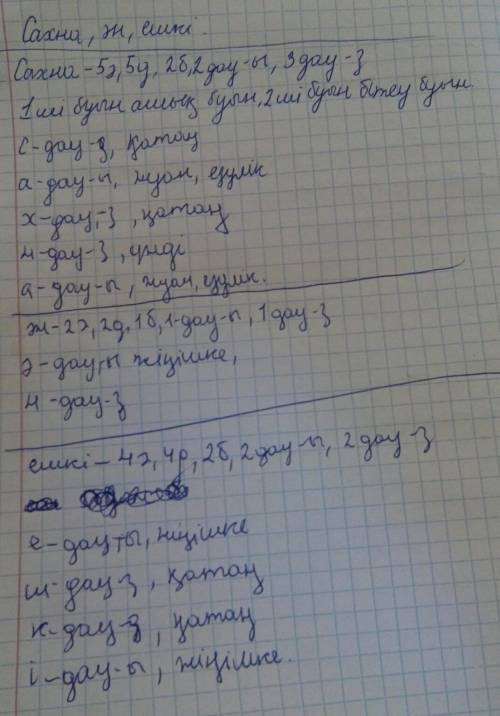 Сахна, ән, ешкі.
Сахна – 5ә, 5д, 2б, 2 дау-ы, 3 дау-з
1 ші буын ашық буын, 2 ші буын бітеу буын.
С-дау-з, қатаң
а-дау-ы, жуан, езулік
х-дау-з, қатаң
н-дау-з, үнді
а-дау-ы, жуан, езулік.
ән-2ә, 2д, 1б, 1-дау-ы, 1 дау-з
ә-дау-ы жіңішке,
н-дау-з
ешкі – 4ә, 4д, 2б, 2 дау-ы, 2 дау-з
е-дау-ты, жіңішке
ш-дау-з, қатаң
к-дау-з, қатаң
і-дау-ы, жіңішке.